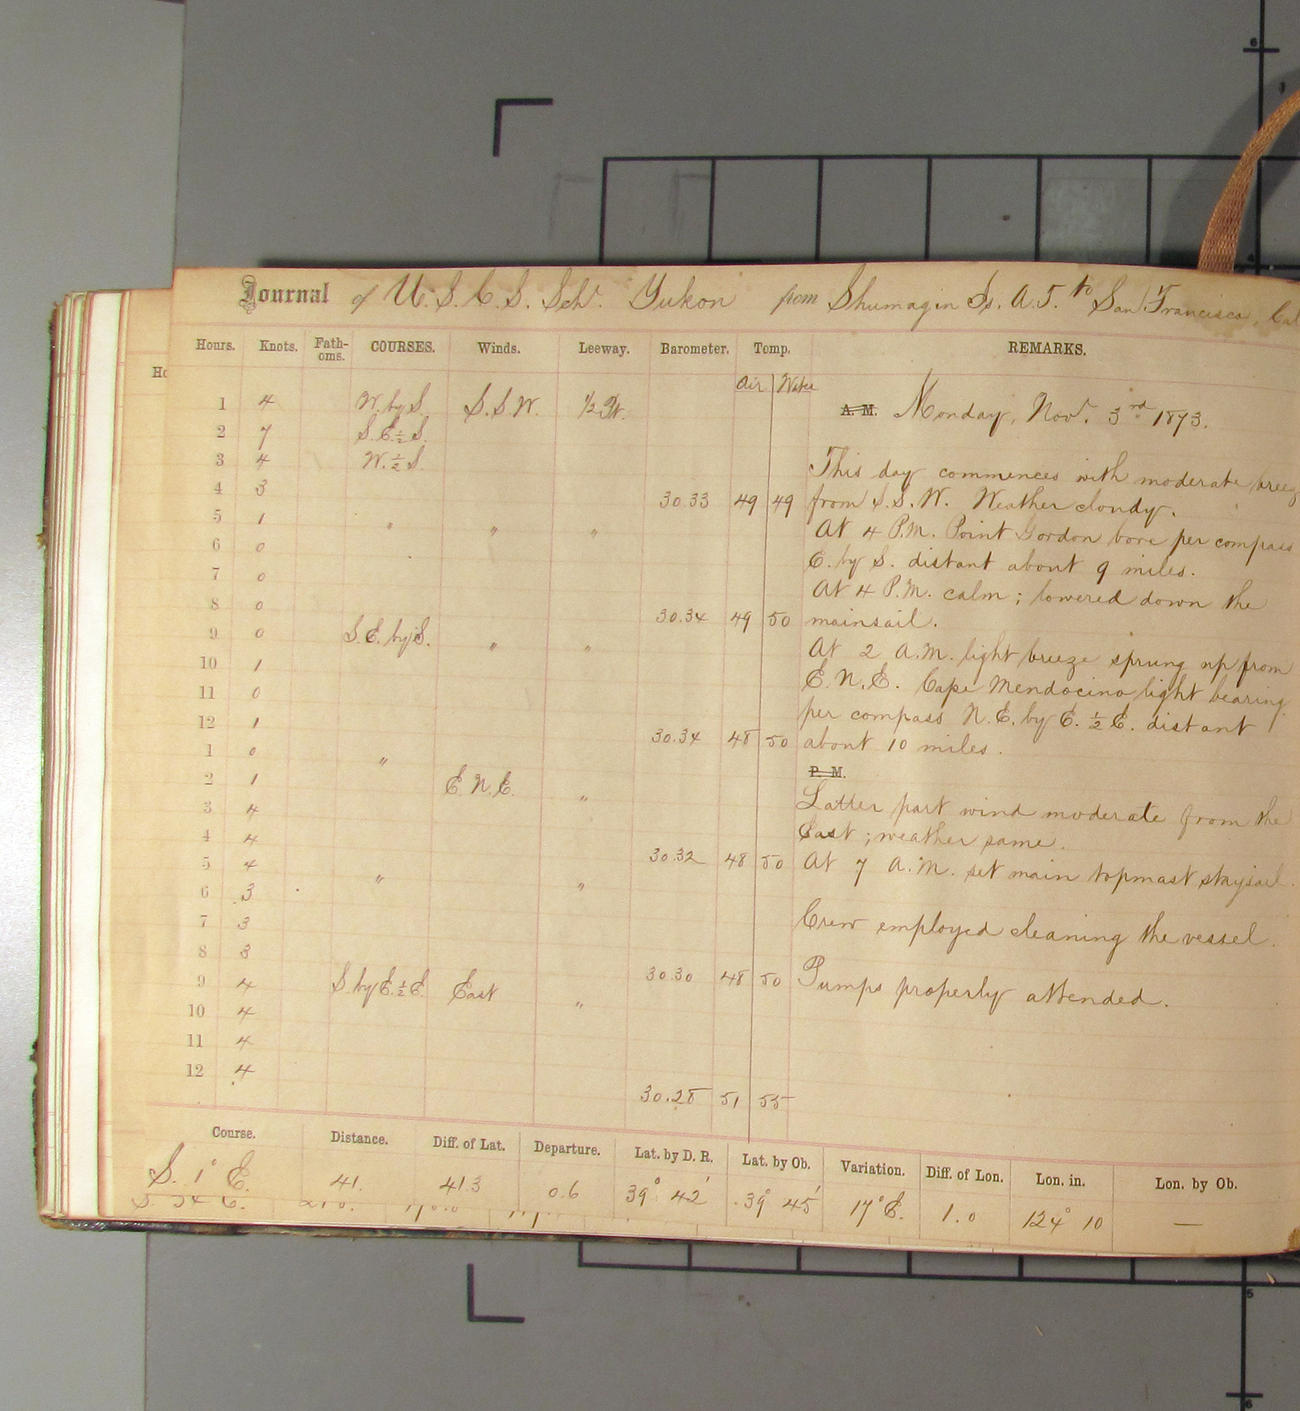 Journal of U.S.C.S. Schr. Yukon from Shumagin Is. A.T. to San Francisco, Cal
Hours. Knots. Fath-oms. COURSES. Winds. Leeway. Barometer. Temp. REMARKS.
Ho
Air Water
1 4 W. by S. S.S.W. ½ Pt. A.M. Monday, Novr. 3rd 1873.
2 7 S.E. ½ S.
3 4 W. ½ S. This day commences with moderate breeze
4 3 30.33 49 49 from S.S.W. Weather cloudy.
5 1 " " " At 4 P.M. Point Gordon bore per compass
6 0 E. by S. distant about 9 miles.
7 0 At 4 P.M. calm; lowered down the
8 0 30.34 49 50 mainsail.
9 0 S.E. by S. " " At 2 A.M. light breeze sprung up from
10 1 E.N.E. Cape Mendocino light bearing
11 0 per compass N.E. by E. ½ E. distant
12 1 30.34 48 50 about 10 miles.
1 0 " P.M.
2 1 E.N.E. " Latter part wind moderate from the
3 4 East; weather same.
4 4 30.32 48 50 At 7 A.M. set main topmast staysail.
5 4 " "
6 3 Crew employed cleaning the vessel.
7 3
8 3 30.30 48 50 Pumps properly attended.
9 4 S. by E. ½ E. East "
10 4
11 4
12 4
30.28 51 55
Course. Distance. Diff. of Lat. Departure. Lat. by D. R. Lat. by Ob. Variation. Diff. of Lon. Lon. in. Lon. by Ob.
S. 1° E. 41. 41.3 0.6 39° 42' 39° 45' 17° E. 1.0 124° 10 —